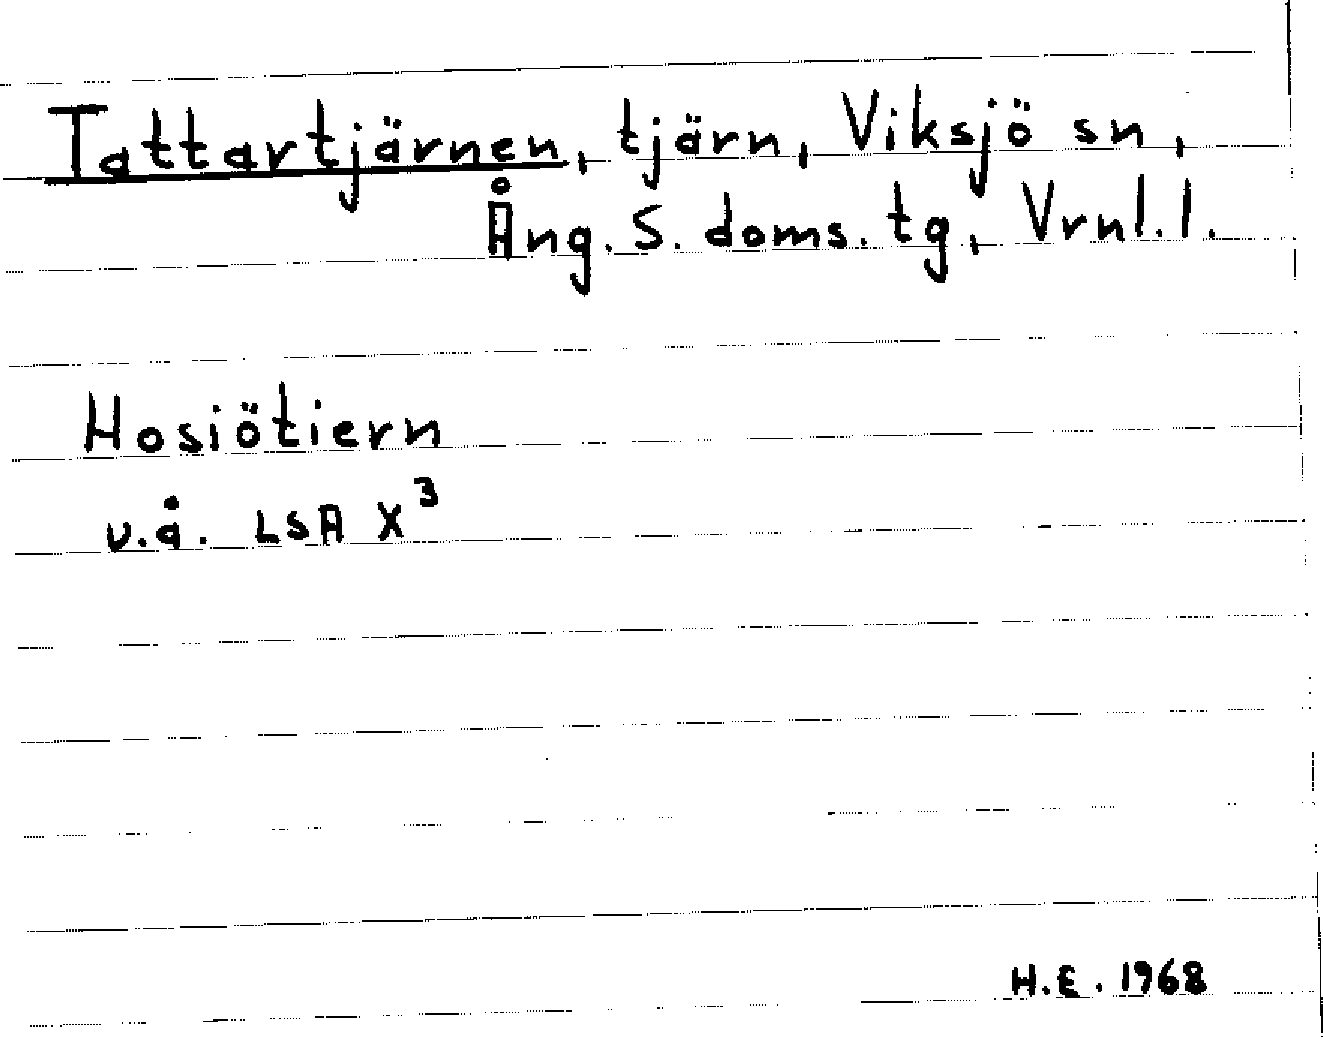 Tattartjärnen, tjärn, Viksjö sn,
Ång. S. doms. tg, Vrnl. l.
Hosiötiern
u.å. LSA X³
H.E. 1968